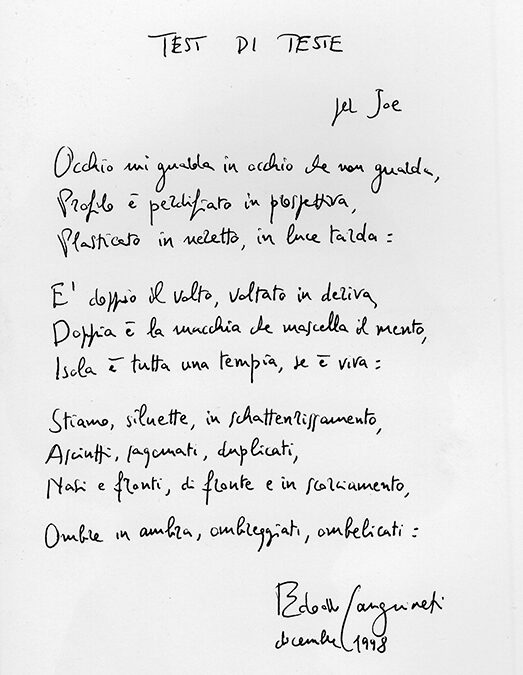 TEST DI TESTE
per Joe
Occhio mi guarda in occhio che non guarda,
Profilo è perdifiato in prospettiva,
Plasticato in neretto, in luce tarda:
E' doppio il volto, voltato in deriva,
Doppia è la macchia che mascella il mento,
Isola è tutta una tempia, se è viva:
Stiamo, siluette, in schattenrissamento,
Asciutti, sagomati, duplicati,
Nasi e fronti, di fronte e in scorciamento,
Ombre in ambra, ombreggiati, ombelicati:
Edoardo Sanguineti
dicembre 1998